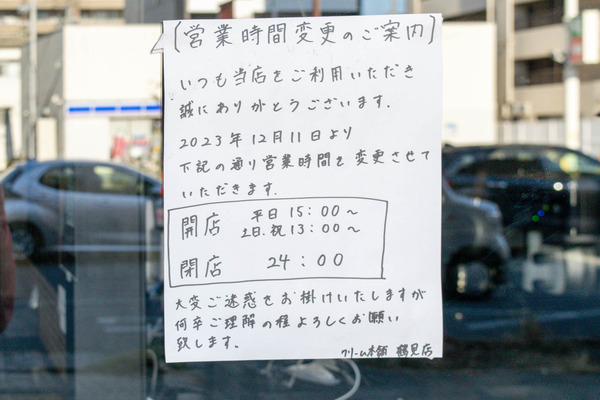 [営業時間変更のご案内]
いつも当店をご利用いただき
誠にありがとうございます.
2023年12月11日より
下記の通り営業時間を変更させて
いただきます.
開店 平日 15:00~
土日.祝 13:00~
閉店 24:00
大変ご迷惑をお掛けいたしますが
何卒ご理解の程よろしくお願い
致します。
クリーム本舗 鶴見店